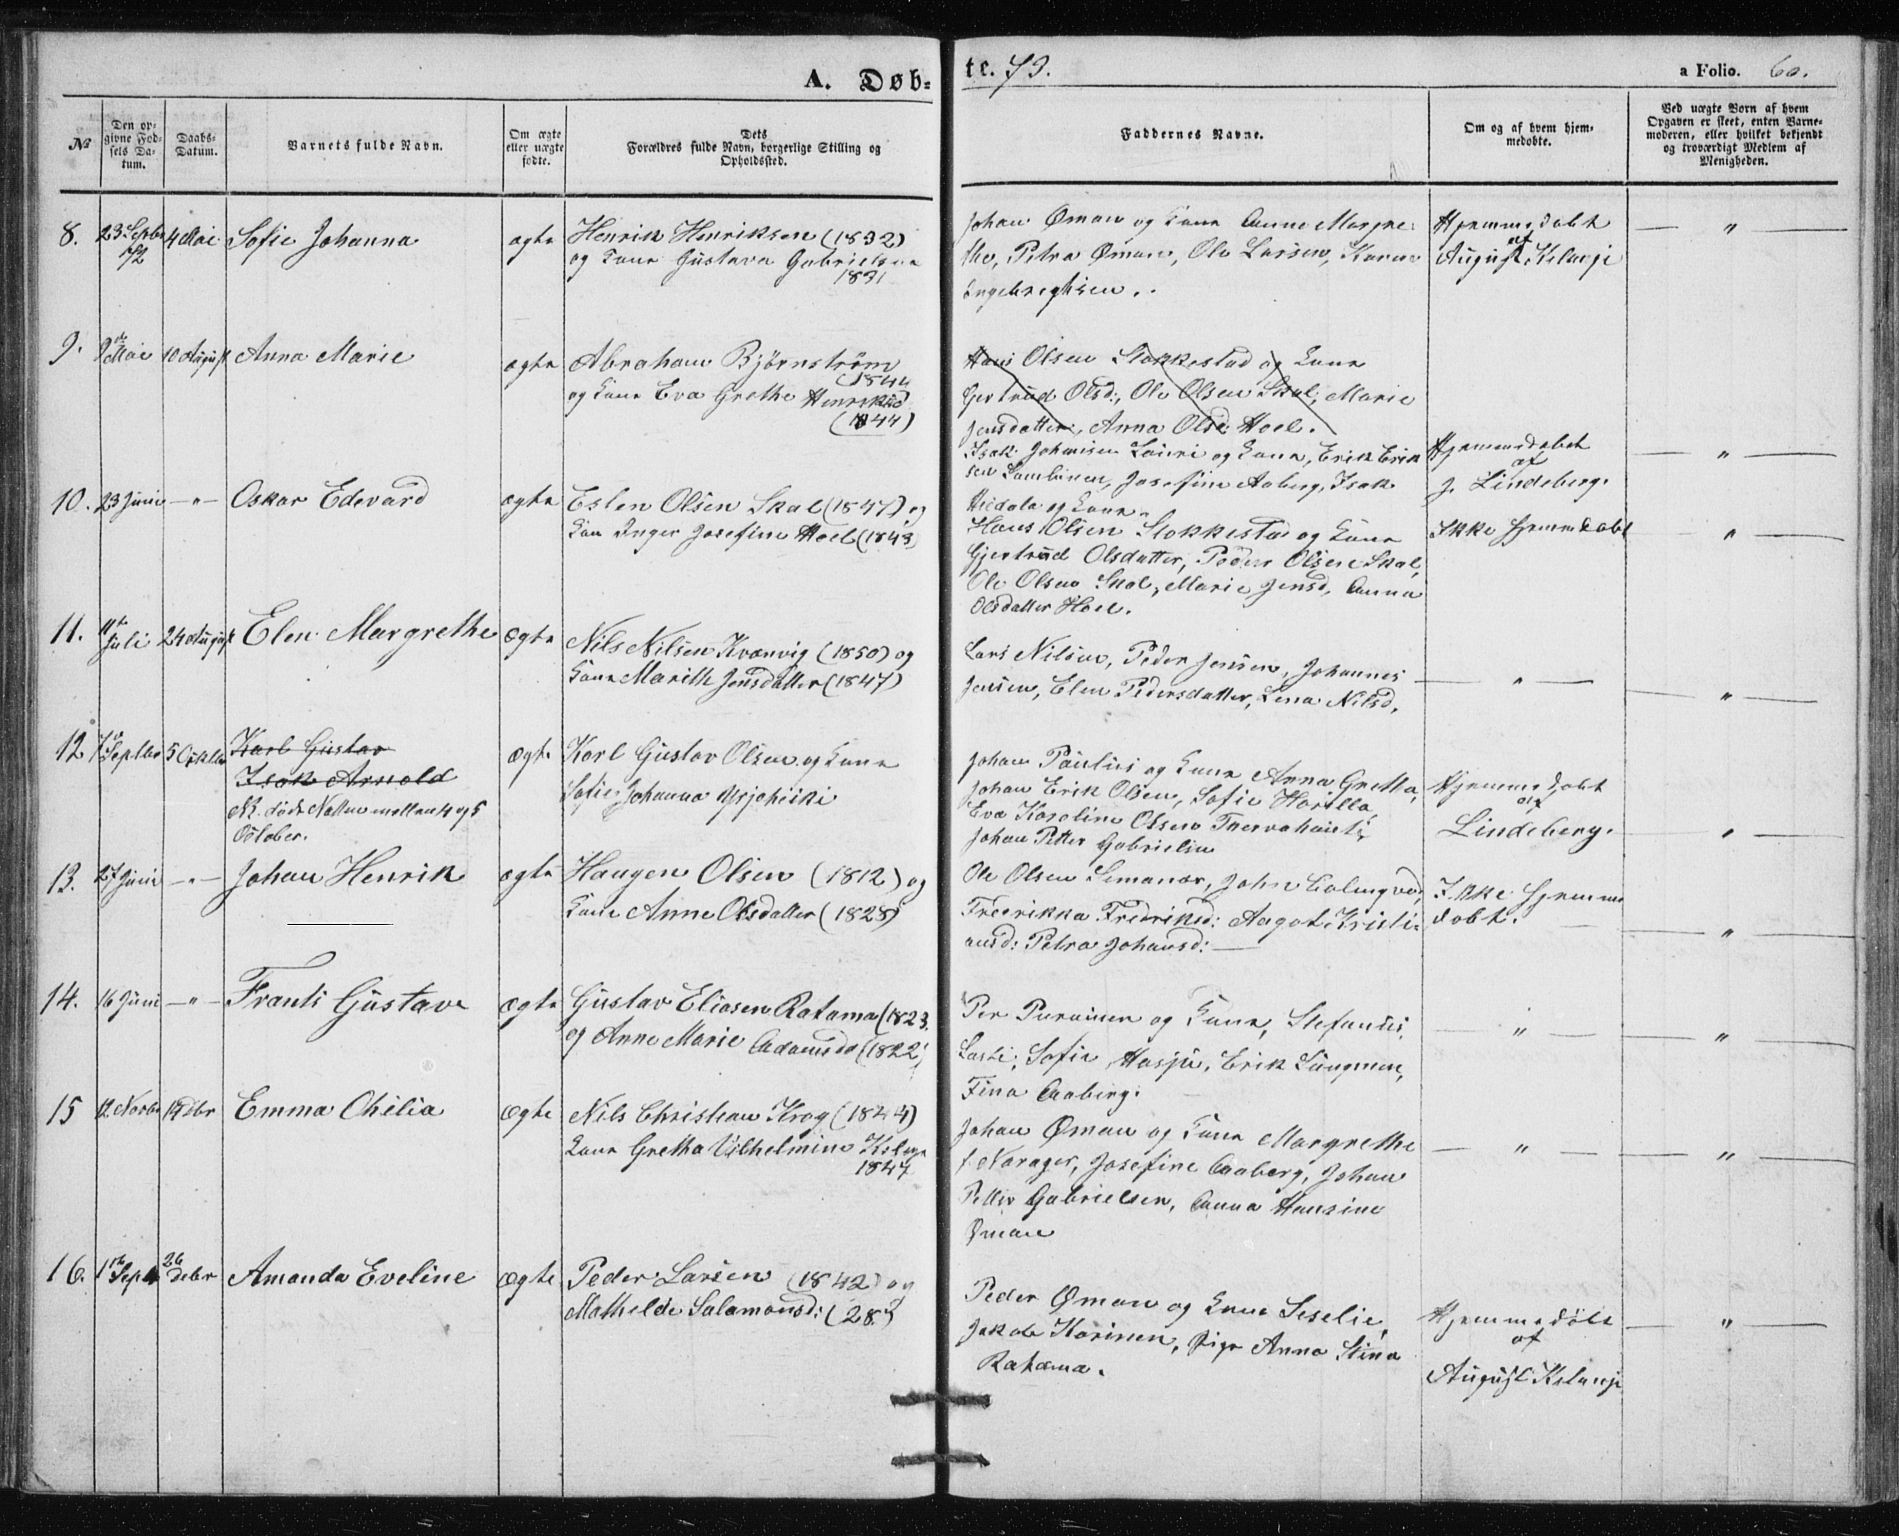 A. Døb=
te. 73.
a Folio. 60.
No
Den op=
givne Fød=
sels Da=
tum.
Daabs=
Datum.
Barnets fulde Navn.
Om ægte
eller uægte
fødte.
Dets
Forældres fulde Navn, borgerlige Stilling og
Opholdssted.
Faddernes Navne.
Om og af hvem hjem=
medøbte.
Ved uægte Børn af hvem
Opgaven er skeet, enten Barne=
moderen, eller hvilket bekjendt
og troværdigt Medlem af
Menigheden.
8.
23 Septbr
72
4 Mai
Sofie Johanna
ægte
Henrik Henriksen (1832)
og Kone Gustava Gabrielsen
1831
Johan Øman og Kone Anne Margre=
the, Petra Øman, Ole Larsen, Karen
Engebreghtsen.
Hjemmedøbt
af
August Kslinje
— " —
9.
9de
Mai
10 August
Anna Marie
ægte
Abraham Bjørnstrøm
(1844
og Kone Eva Grethe Henriksd
(1844)
Hans Olsen Stokkestad og Kone
Gertrud Olsd:, Ole Olsen Skal, Marie
Jensdatter, Anna Olsd: Hoel.
Isak Johansen Lauri og Kone, Erik Erik
sen Lambinen, Josefine Aaberg, Isak
Hietala og Kone.
Hjemmedøbt
af
J. Lindeberg.
— " —
10.
23 Juni
— " —
Oskar Edevard
ægte
Eslen Olsen Skal (1847) og
Kone Inger Josefine Hoel (1843)
Hans Olsen Stokkestad og Kone
Gjertrud Olsdatter, Peder Olsen Skal,
Ole Olsen Skal, Marie Jensd, Anna
Olsdatter Hoel.
Ikke hjemmedøbt
— " —
11.
11te
Juli
24 August
Elen Margrethe
ægte
Nils Nilsen Kvænvig (1850) og
Kone Marith Jonsdatter (1847)
Lars Nilsen, Peder Jensen, Johannes
Jensen, Elen Pedersdatter, Lena Nilsd.
— " —
— " —
12
Septbr
5 Oktbr
Karl Gustav
Isak Arnold
NB. døde Natten mellem 4 og 5
October.
ægte
Karl Gustav Olsen og Kone
Sofie Johanna Yrjeheiki
Johan Paulus og Kone Anna Gretha,
Johan Erik Olsen, Sofie Harilla,
Eva Karoline Olsen Thervahauti,
Johan Petter Gabrielsen
Hjemmedøbt
af
Lindeberg.
— " —
13.
27 Juni
— " —
Johan Henrik
ægte
Haugen Olsen (1812) og
Kone Anne Olsdatter (1828)
Ole Olsen Simanær, John
Fredrikka Fredriksd: Aagot Kristi=
ansd: Petra Johansd: —
Ikke hjemme
døbt.
— " —
14.
16 Juni
— " —
Frants Gustav
ægte
Gustav Eliasen Ratama (1823.
og Anne Marie Adamsd (1822)
Per Purainen og Kone, Stefanus
Lasti, Sofie Harju, Erik Langmen,
Fina Aaberg.
— " —
— " —
15
12. Novbr
14 Dbr
Emma Ohilia
ægte
Nils Christian Krog (1844)
Kone Gretha Vilhelmine
1847
Johan Øman og Kone Margrethe
f. Norager, Josefine Aaberg, Johan
Petter Gabrielsen, Anna Hansine
Øman
— " —
— " —
16.
1ste
Sept
26
Debr
Amanda Eveline
ægte
Peder Larsen (1842) og
Mathilde Salamonsd: (28)
Peder Øman og Kone Seselie,
Jakob Karinen, Pige Anna Stina
Ratama.
Hjemmedøbt
af
August Kslinje
— " —